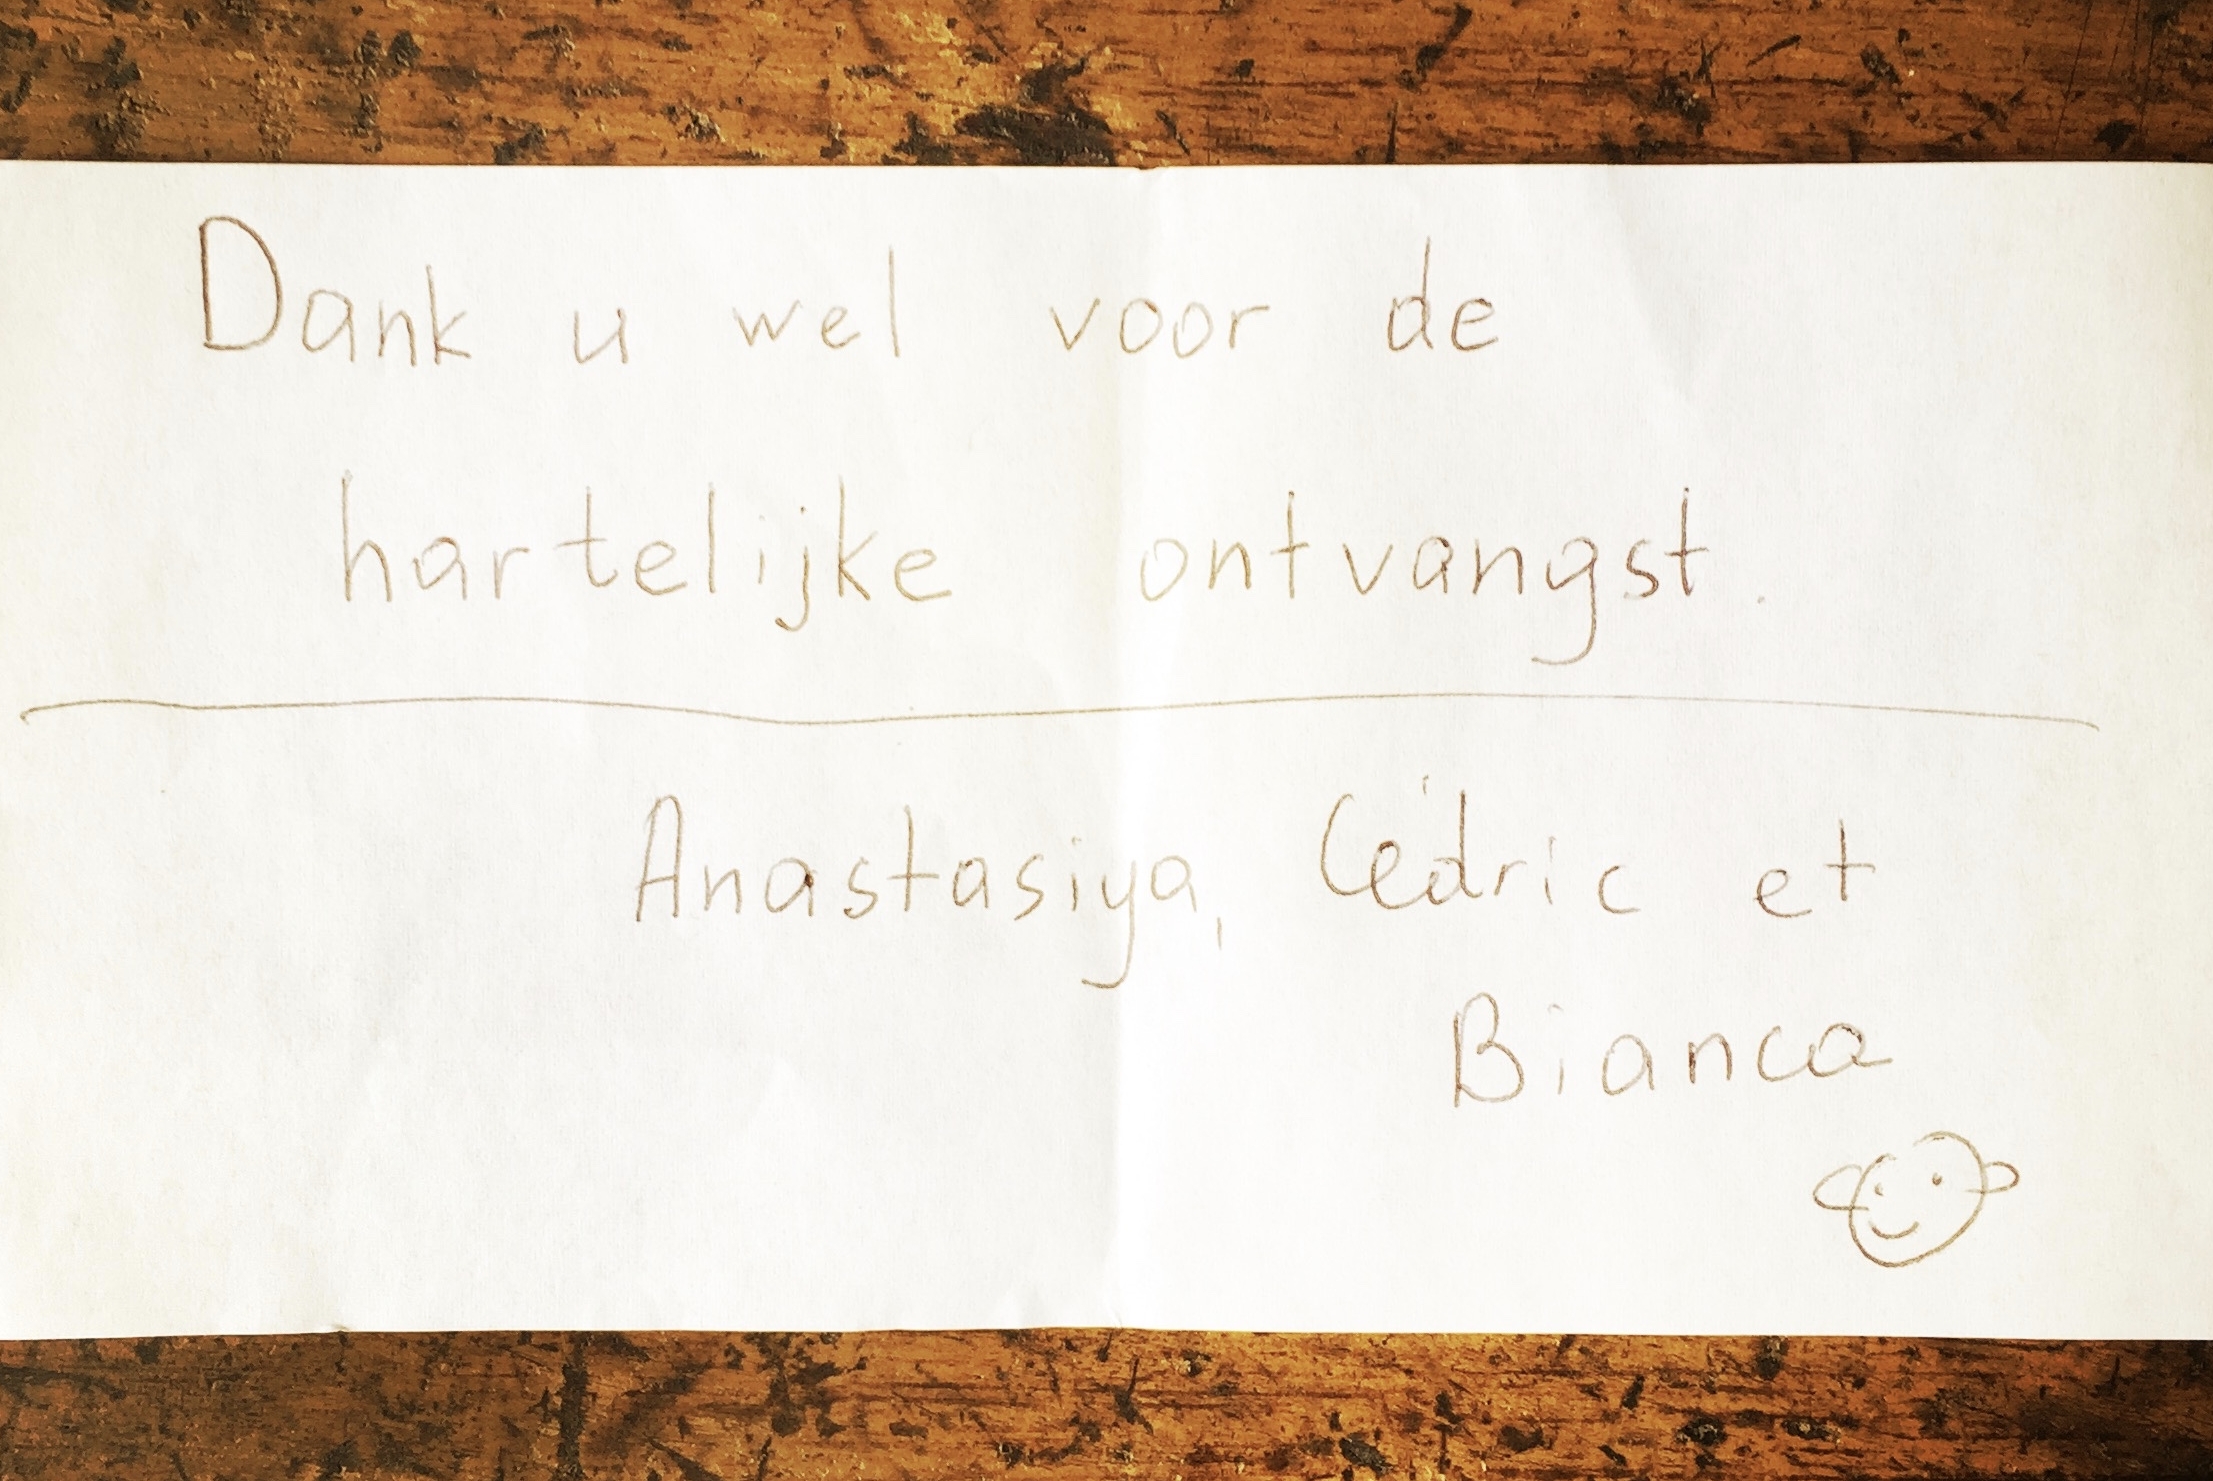 Dank u wel voor de
hartelijke ontvangst.
Anastasiya, Cédric et
Bianca